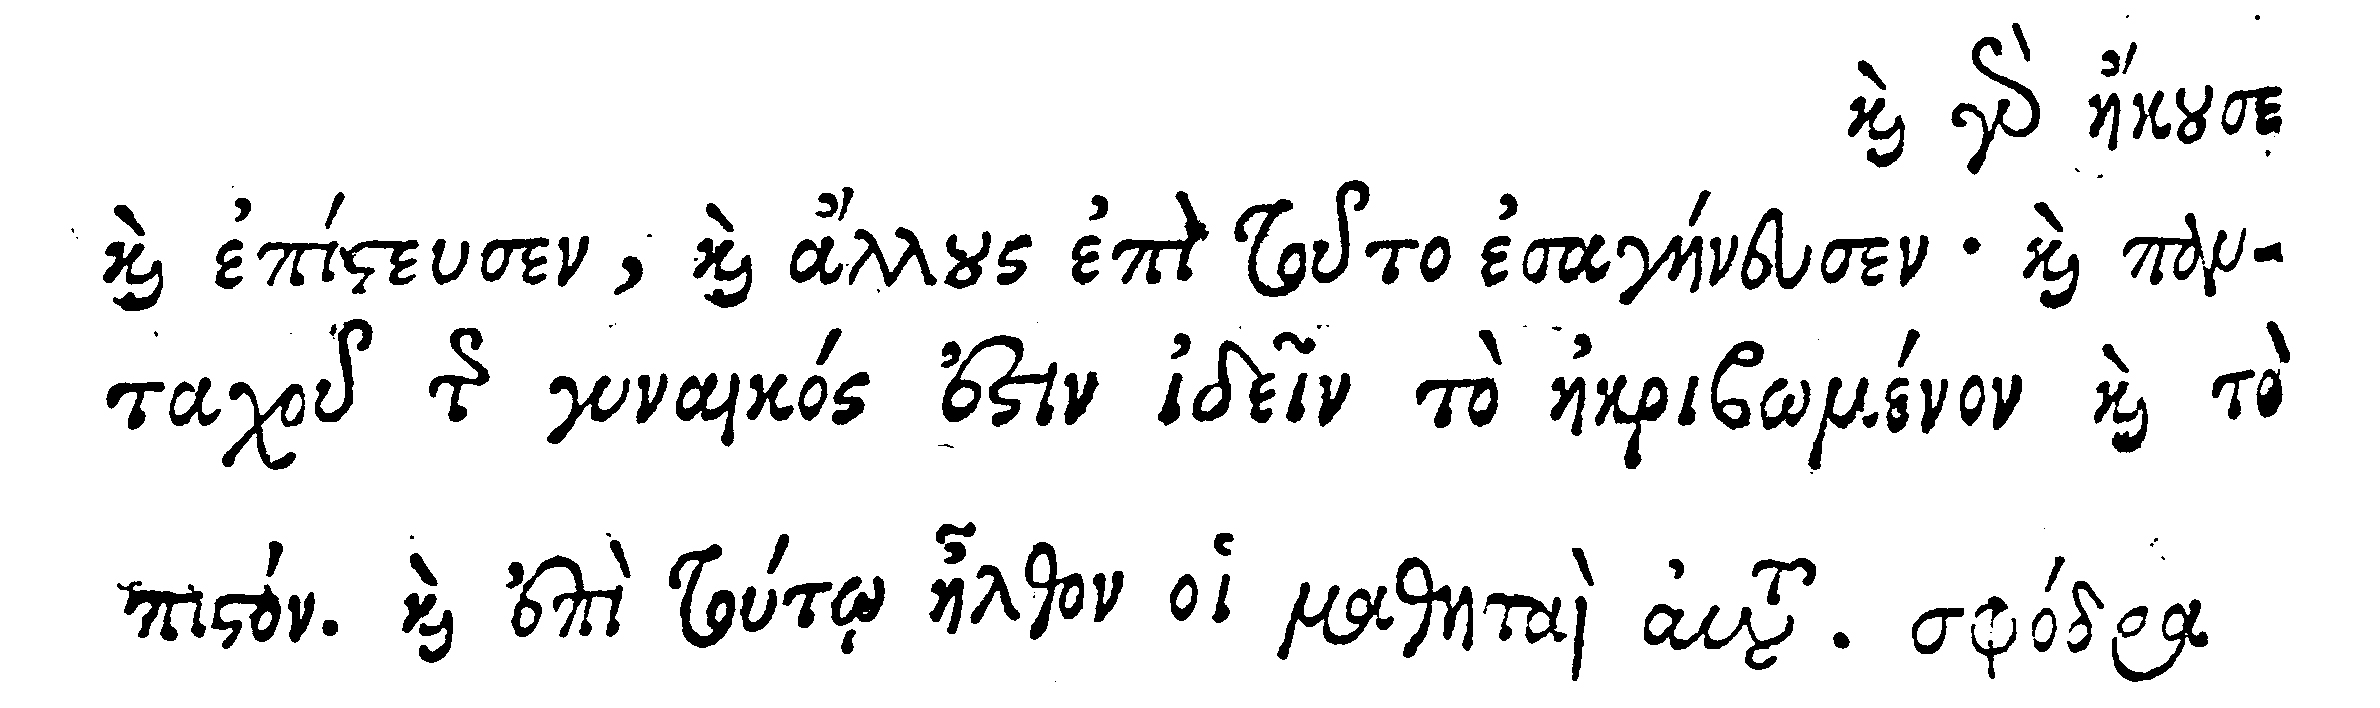 καὶ γὰρ ἤκουσε
καὶ ἐπίστευσεν, καὶ ἄλλους ἐπὶ τοῦτο ἐσαγήνευσεν· καὶ παν-
ταχοῦ τῆς γυναικός ἐστιν ἰδεῖν τὸ ἠκριβωμένον καὶ τὸ
πιστόν. καὶ ἐπὶ τούτῳ ἦλθον οἱ μαθηταὶ αὐτοῦ. σφόδρα